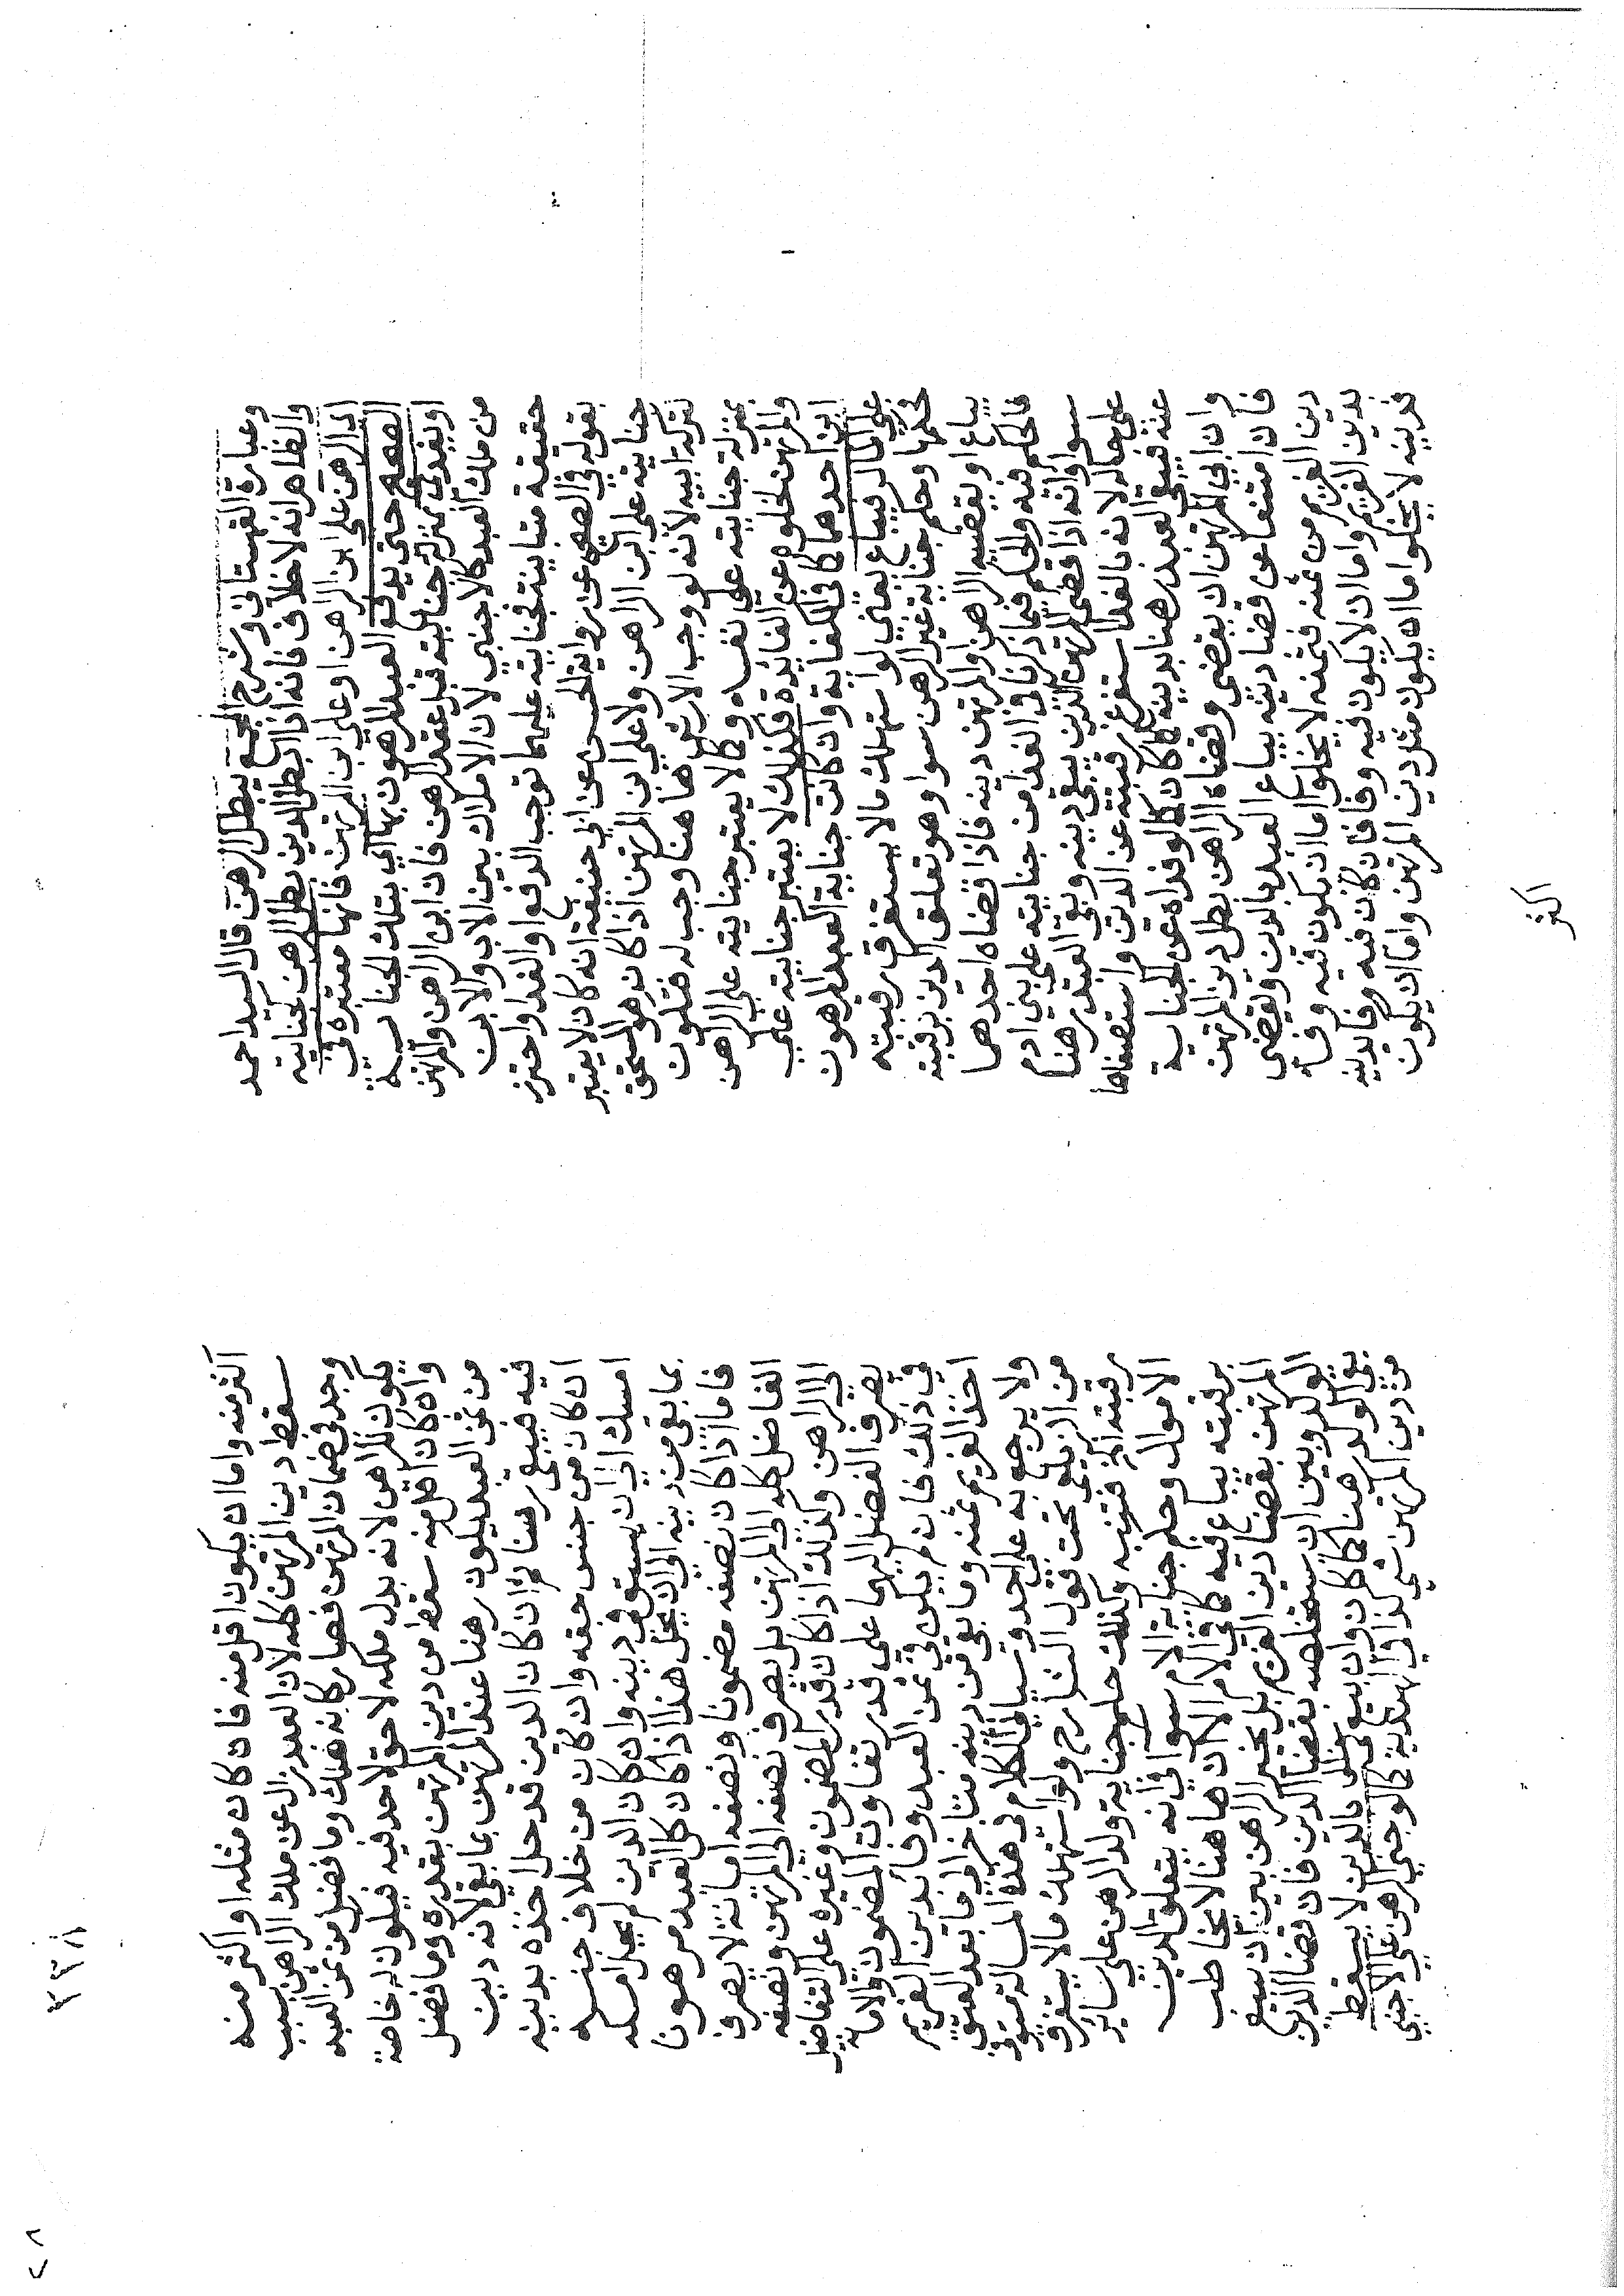 وعبارة القهستاني وشرح المجمع يبطل الرهن قال السيد احمد
والظاهر انه لا خلاف فانه اذا بطل الدين بطل الرهن كجنايته
اي الرهن على ابن الراهن او على ابن المرتهن فانها معتبرة في
الصحيح حتى يدفع العبد المرهون بها اي بتلك الجناية
او يفدى بمنزلة جنايته قبل عقد الرهن فان ابن الراهن والمرتهن
من ملك العبد كالاجنبي لان الاملاك بين الاب والابن
حقيقة متباينة فجنايته عليهما توجب الدفع او الفدا واحترز
بقوله في الصحيح عن رواية الحسن عن ابي حنيفة انه كان لا يعتبر
جنايته على ابن الراهن ولا على ابن المرتهن اذا كان هو المستحق
لتركة ابيه لأنه لو وجب الارش ها هنا وجب له فتكون
بمنزلة جنايته على نفسه وكما لا يعتبر جنايته على الراهن
والمرتهن لخلوه عن الفائدة فكذلك لا يعتبر جنايته على
ابن احدهما كما في الكفاية وان كانت جناية العبد المرهون
على المال فيباع يعني لو استهلك مالا يستغرق رقبته
فحكمها وحكم جناية غير الرهن سوا وهو تعلق الدين برقبته
يباع او يقضيه الراهن والمرتهن دينه فاذا قضاه احدهما
فالحكم فيه والحكم فيما ذكرنا في الفدا من جنايته على بني ادم
سوا وانه اذا قضى المرتهن الدين يبقى دينه وبقى العبد رهنا
على حاله لانه بالفدا استفرغ رقبته عن الدين واستصفاها
عنه فيبقى العبد رهنا بدينه كما كان كما لو فداه عن الجناية
وان ابي المرتهن ان يقضى وقضاه الراهن بطل دين المرتهن
فان امتنعا عن قضا دينه يباع العبد بالدين ويقضى
دين الغريم من ثمنه فثمنه لا يخلوا اما ان يكون فيه وفا
بدين الغريم واما ان لا يكون فيه وفا فان كان فيه وفا لدينه
فدينه لا يخلوا اما ان يكون مثل دين المرتهن واما ان يكون
اكثر
اكثر منه واما ان يكون اقل منه فان كان مثله او اكثر منه
سقط دين المرتهن كله لان العبد زال عن ملك الراهن بسبب
وجد في ضمان المرتهن فصار كانه هلك وما فضل من ثمن العبد
يكون للراهن لانه بدل ملكه لا حق لاحد فيه فيكون له خاصة
وان كان اقل منه سقط من دين المرتهن بقدره وما فضل
من ثمن العبد يكون رهنا عند المرتهن بما بقى لانه دين
فيه فيبقى رهنا ثم ان كان الدين قد حل اخذه بدينه
ان كان من جنس حقه وان كان من خلاف جنسه
امسك الى ان يستوفي دينه وان كان الدين لم يحل امسكه
بما بقى من دينه الى ان يحل هذا اذا كان كل العبد مرهونا
فاما اذا كان نصفه مضمونا ونصفه امانة لا يصرف
الفاضل كله الى المرتهن بل يصرف نصفه الى المرتهن ونصفه
الى الراهن وكذلك اذا كان قدر المضمون وغيره على التفاضل
يصرف الفضل اليهما على قدر تفاوت المضمون والامانة
في ذلك فان لم يكن في ثمن العبد وفا بدين الغريم
اخذ الغريم ثمنه وما بقى من دينه يتاخر الى ما بعد العتق
ولا يرجع به على احد وسياتي الكلام في هذه المسالة مستوفى
من الزيلعي تحت قول الشارح ولو استهلك مالا يستغرق
رقبته الخ فتنبه وكذلك حكم جناية ولد الرهن على ساير
الاموال وحكم جناية الام سوا في انه يتعلق الدين
برقبته يباع فيه كما في الام الا ان ها هنا لا يخاطب
المرتهن بقضا دين الغريم بل يخير الراهن بين ان يبيع
الولد وبين ان يستخلصه بقضا الدين فان قضا الدين
بقى الولد رهنا كما كان وان بيع بالدين لا يسقط
من دين المرتهن شي كذا في الهندية كما لو جنى الرهن على الاجنبي